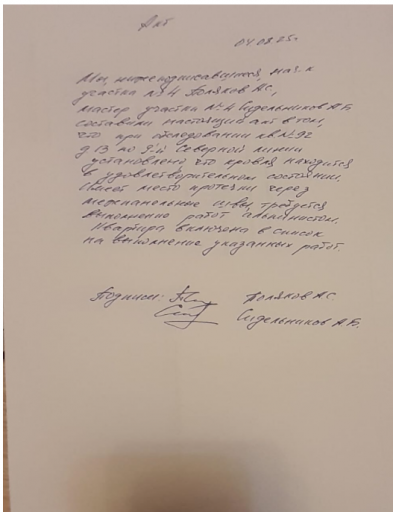 Акт
04.08.25г
Мы, нижеподписавшиеся, нач. к
участка №4 Поляков АС,
мастер участка №4 Сидельников А.Б
составили настоящий акт в том,
что при обследовании кв №92
д 13 по 9-й Северной линии
установлено что кровля находится
в удовлетворительном состоянии.
Имеет место протечки через
межпанельные швы, требуется
выполнение работ альпинистом.
Квартира включена в список
на выполнение указанных работ.
Подписи: Поляков АС
Сидельников А.Б.